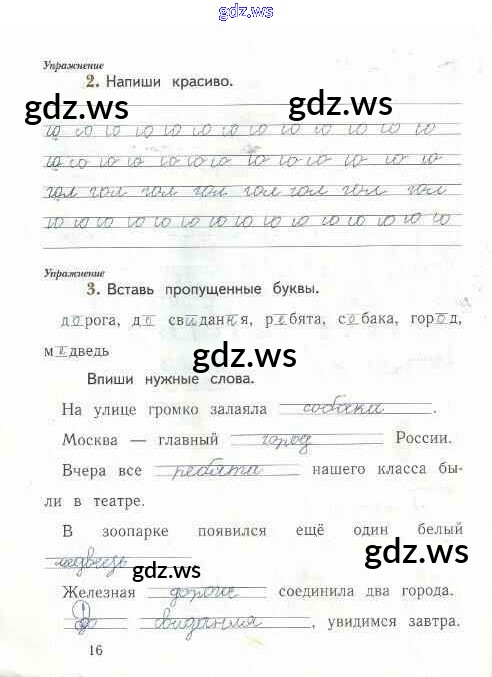 gdz.ws
Упражнение
2. Напиши красиво.
gdz.ws
gdz.ws
ю ю ю ю ю ю ю ю ю ю ю ю ю ю
ю ю ю ю ю ю ю ю ю ю ю ю ю
гол гол гол гол гол гол гол гол
ю ю ю ю ю ю ю ю ю ю ю ю ю ю ю
Упражнение
3. Вставь пропущенные буквы.
дорога, до свидания, ребята, собака, город,
медведь
gdz.ws
Впиши нужные слова.
На улице громко залаяла собака.
Москва — главный город России.
Вчера все ребята нашего класса бы-
ли в театре.
В зоопарке появился ещё один белый
медведь
gdz.ws
gdz.ws
Железная дорога соединила два города.
До свидания, увидимся завтра.
16
gdz.ws